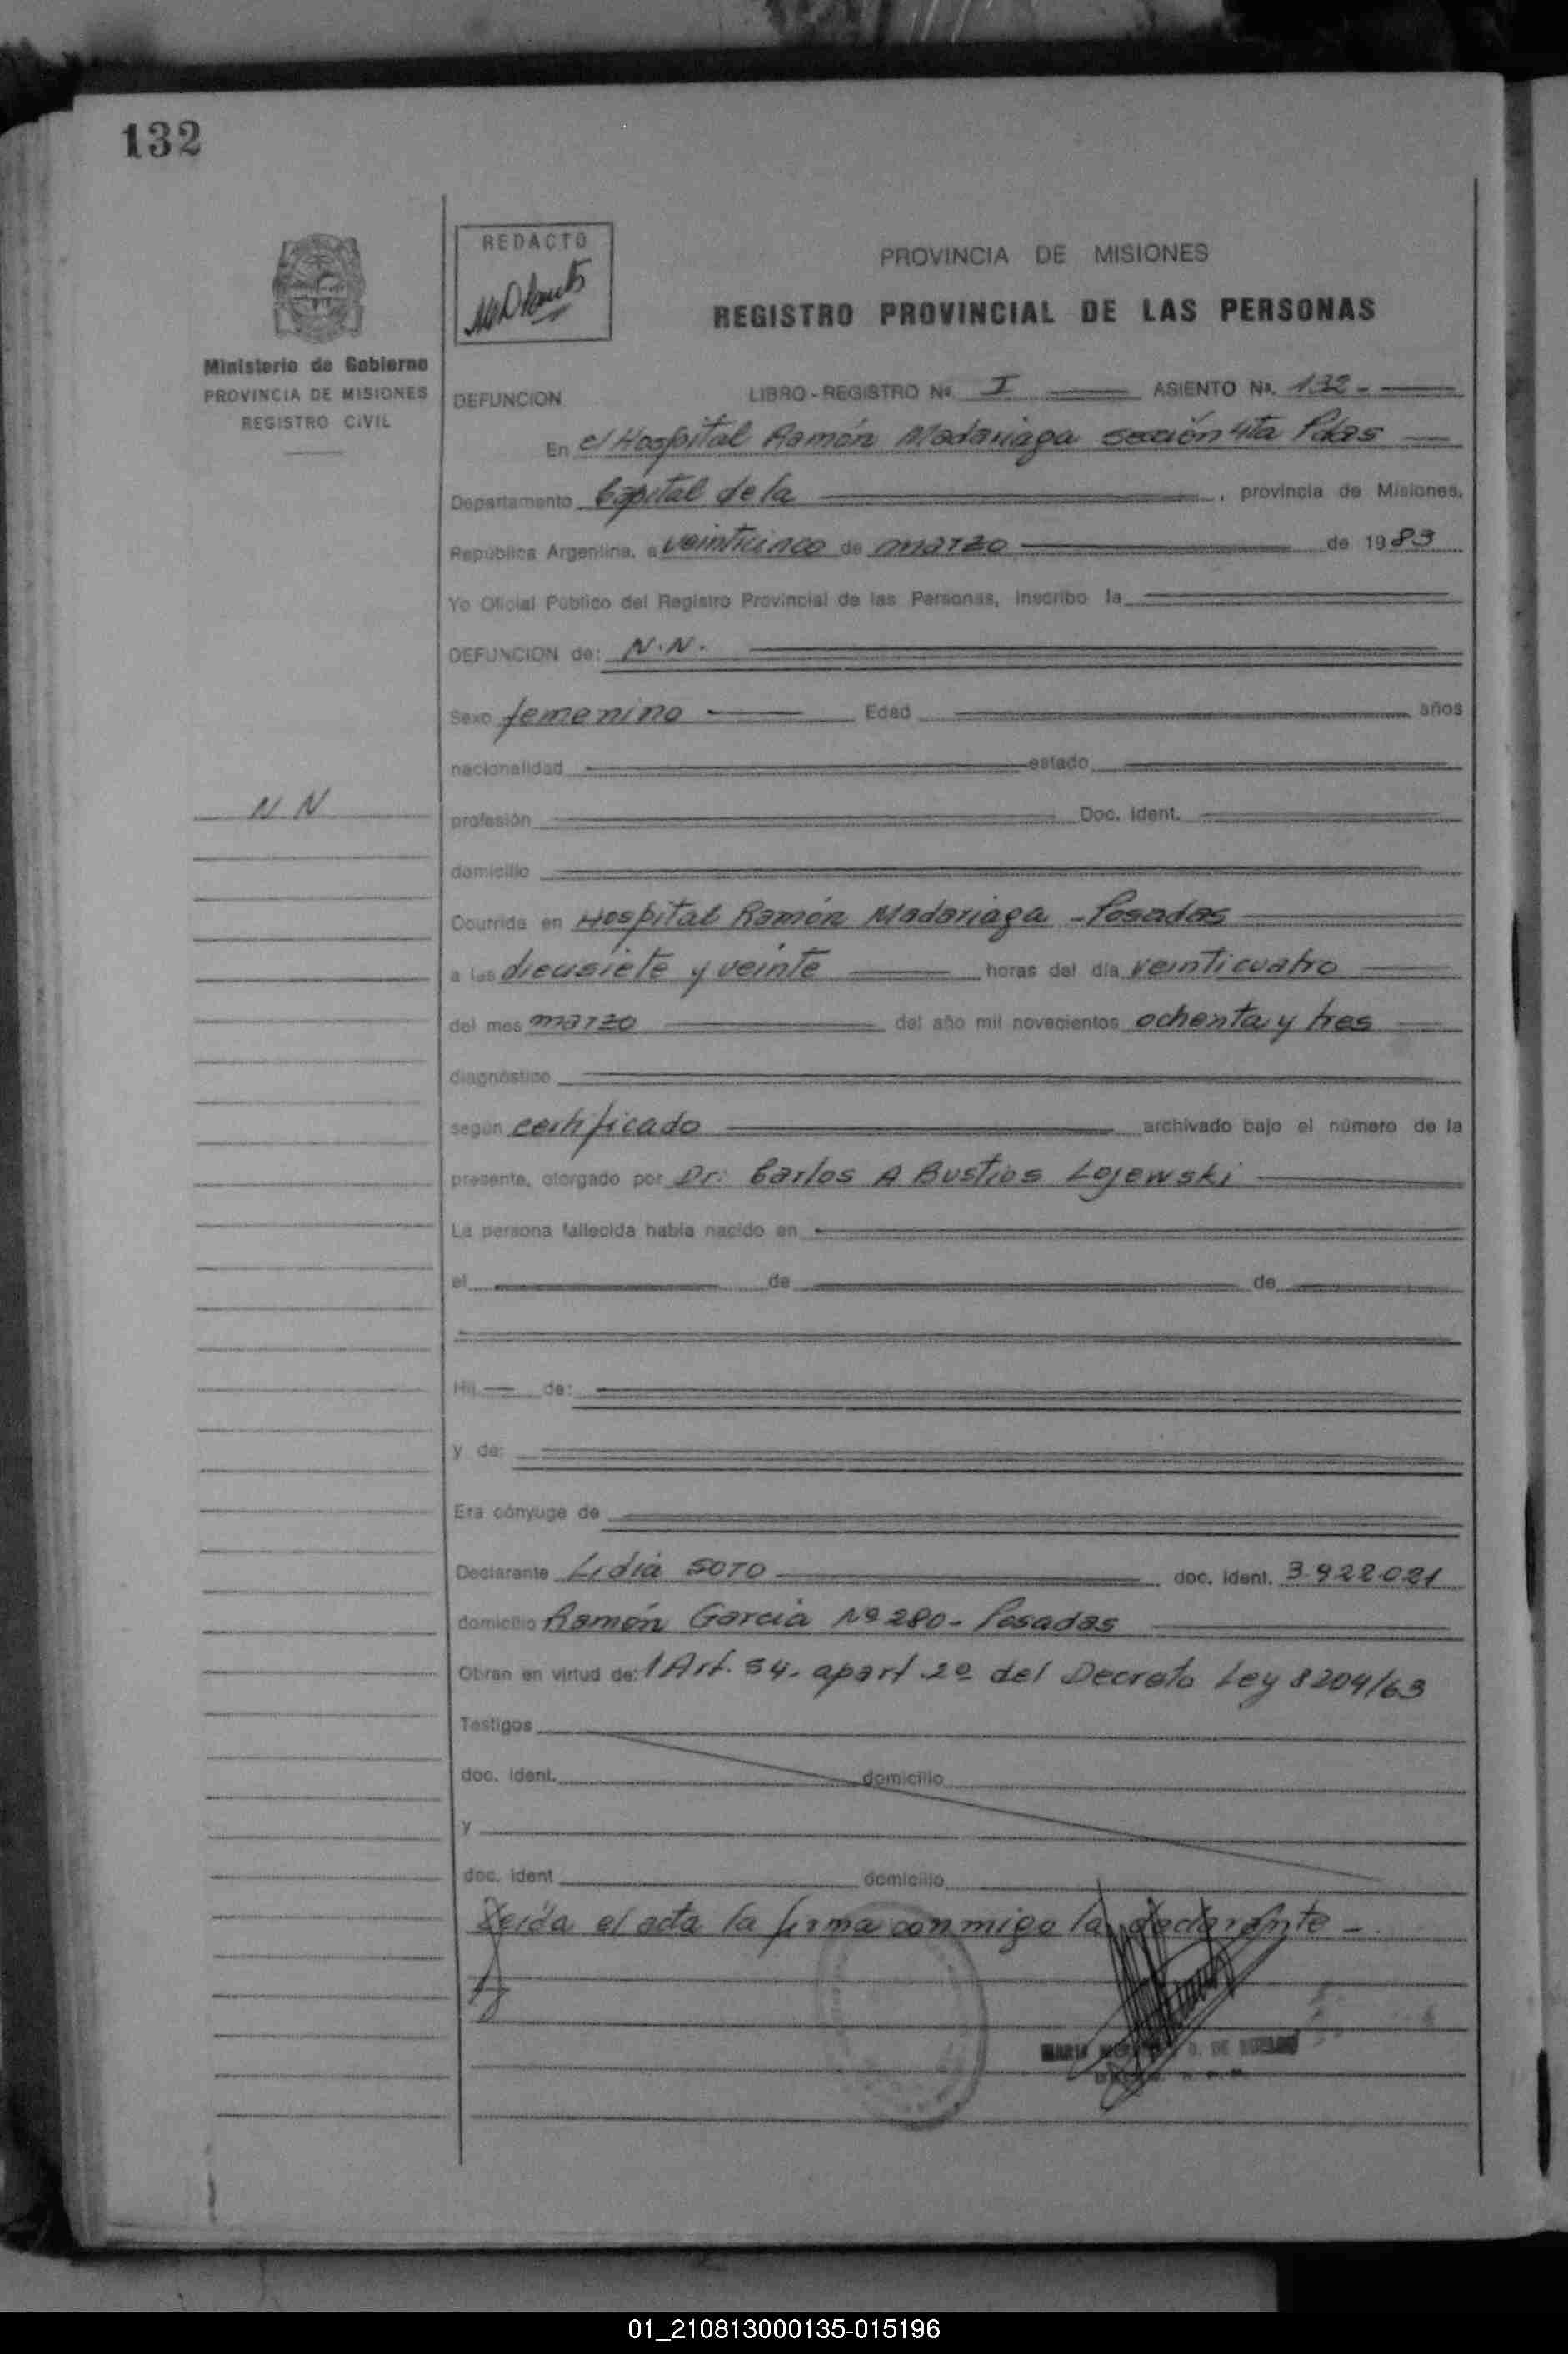 132
REDACTO
PROVINCIA DE MISIONES
REGISTRO PROVINCIAL DE LAS PERSONAS
Ministerio de Gobierno
PROVINCIA DE MISIONES
REGISTRO CIVIL
DEFUNCION LIBRO - REGISTRO Nº. I ASIENTO Nº. 132 -
En el Hospital Ramón Madariaga sección 4ta Pdas
Departamento Capital de la , provincia de Misiones,
República Argentina, a veinticinco de marzo de 1983
Yo Oficial Público del Registro Provincial de las Personas, inscribo la
DEFUNCION de: N.N.
Sexo femenino Edad años
nacionalidad estado
N N
profesión Doc. Ident.
domicilio
Ocurrida en Hospital Ramón Madariaga - Posadas
a las diecisiete y veinte horas del día veinticuatro
del mes marzo del año mil novecientos ochenta y tres
diagnóstico
según certificado archivado bajo el número de la
presente, otorgado por Dr. Carlos A Bustios Lejewski
La persona fallecida había nacido en
el de de
Hij de:
y de:
Era cónyuge de
Declarante Lidia SOTO doc. ident. 3.922.021
domicilio Ramón Garcia Nº 280 - Posadas
Obran en virtud de: l Art. 54. apart. 2º del Decreto Ley 8204/63
Testigos
doc. ident. domicilio
y
doc. ident domicilio
Leída el acta la firma conmigo la declarante -.
MARIA DE
01_210813000135-015196